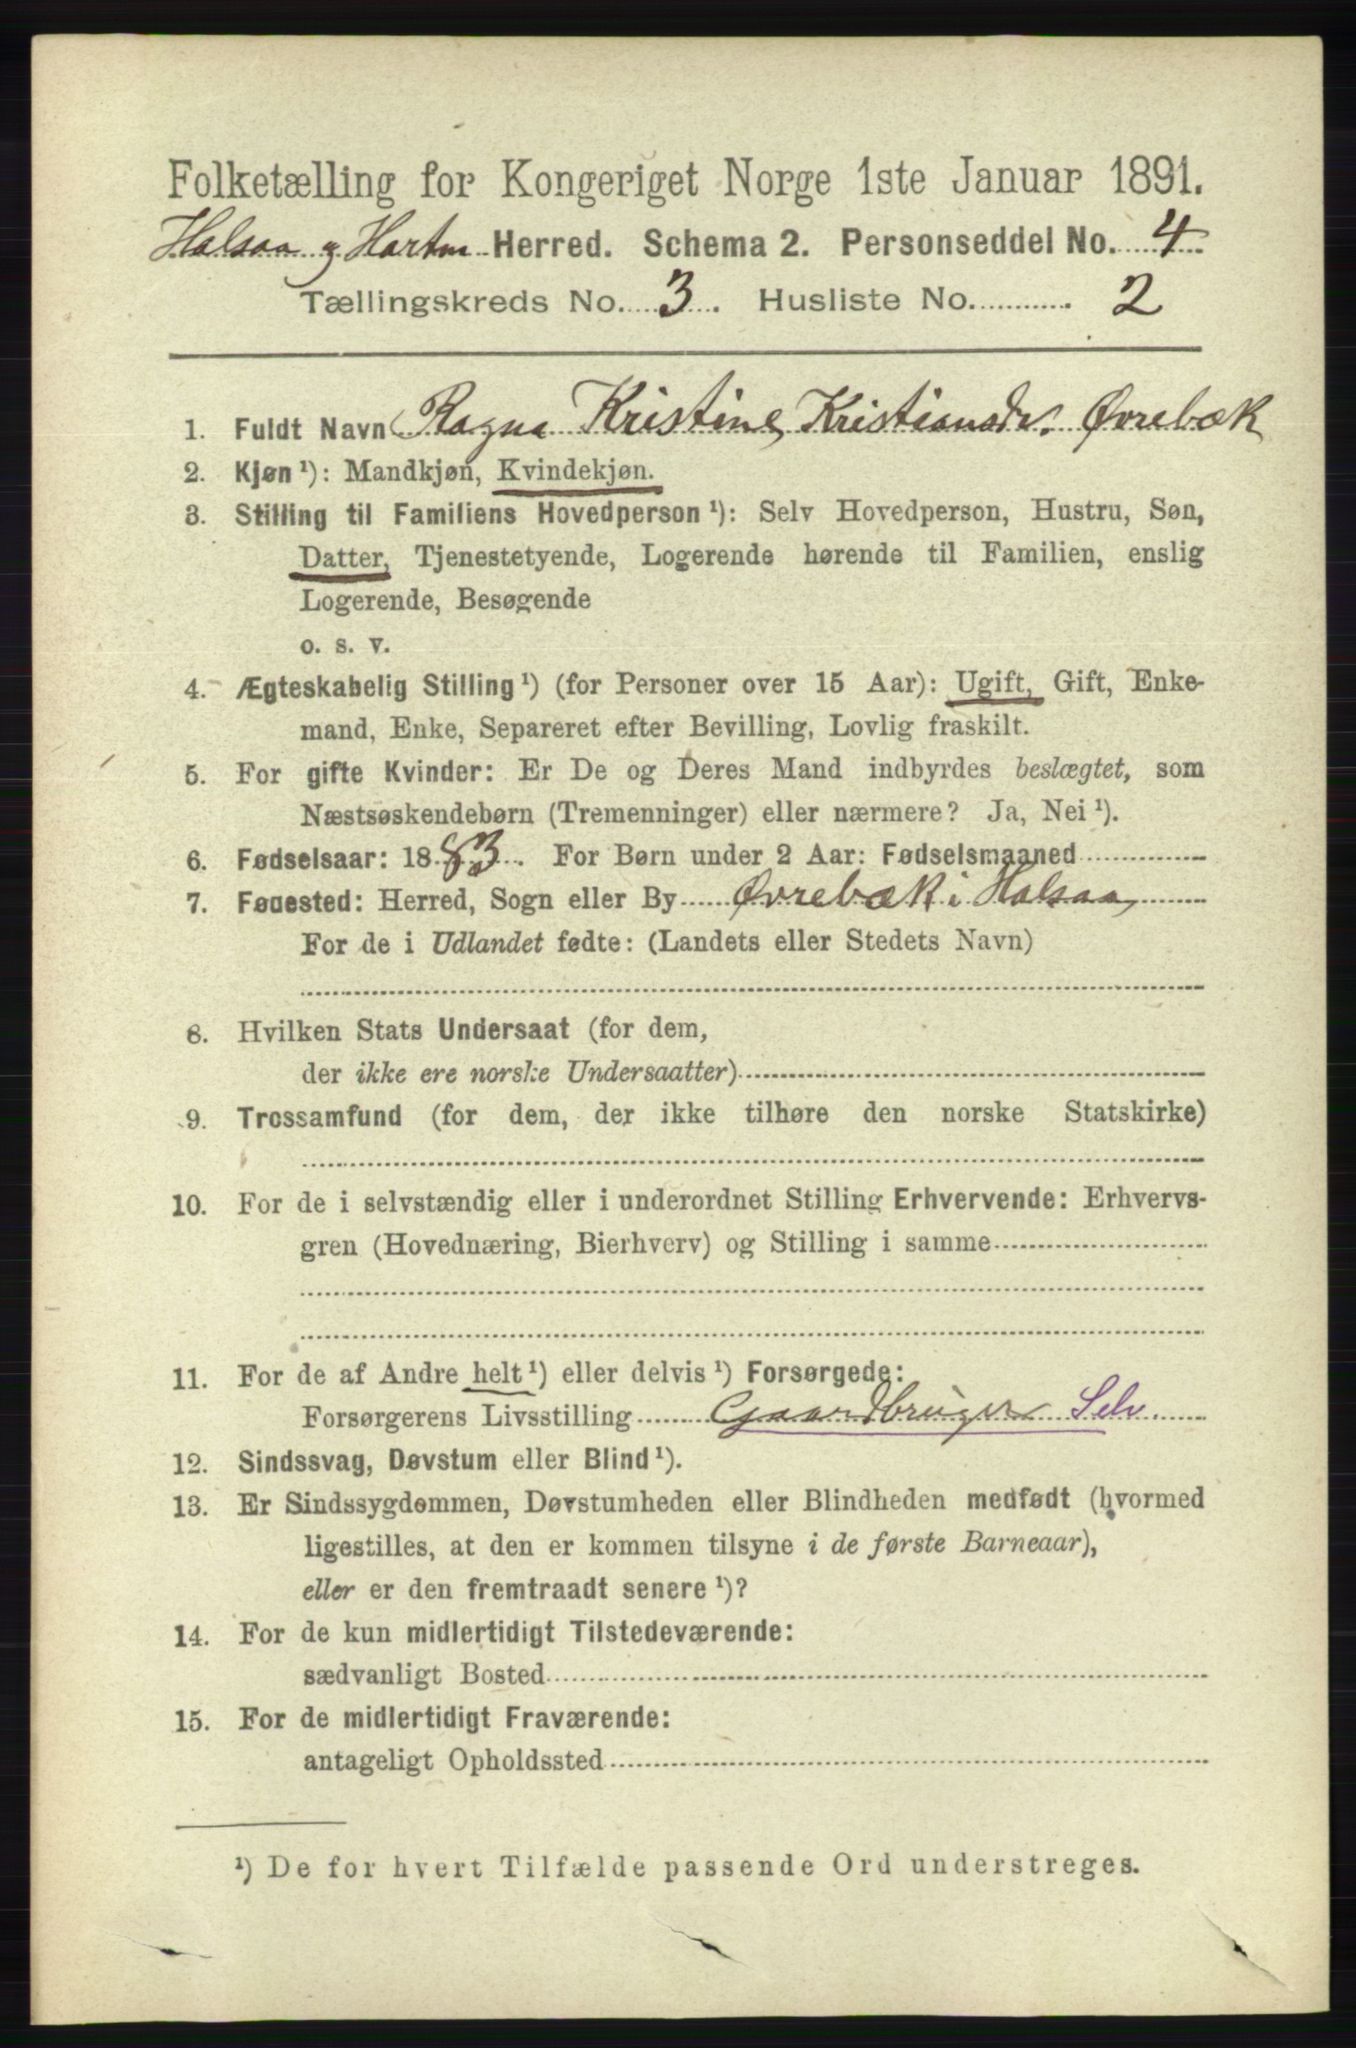 Folketælling for Kongeriget Norge 1ste Januar 1891.
Halsaa og Hartm Herred. Schema 2. Personseddel No. 4
Tællingskreds No. 3. Husliste No. 2
1. Fuldt Navn Ragna Kristine Kristiansdr. Øvrebæk
2. Kjøn ¹): Mandkjøn, Kvindekjøn.
3. Stilling til Familiens Hovedperson ¹): Selv Hovedperson, Hustru, Søn,
Datter, Tjenestetyende, Logerende hørende til Familien, enslig
Logerende, Besøgende
o. s. v.
4. Ægteskabelig Stilling ¹) (for Personer over 15 Aar): Ugift, Gift, Enke-
mand, Enke, Separeret efter Bevilling, Lovlig fraskilt.
5. For gifte Kvinder: Er De og Deres Mand indbyrdes beslægtet, som
Næstsøskendebørn (Tremenninger) eller nærmere? Ja, Nei ¹).
6. Fødselsaar: 1883. For Børn under 2 Aar: Fødselsmaaned
7. Fødested: Herred, Sogn eller By Øvrebæk i Halsaa
For de i Udlandet fødte: (Landets eller Stedets Navn)
8. Hvilken Stats Undersaat (for dem,
der ikke ere norske Undersaatter)
9. Trossamfund (for dem, der ikke tilhøre den norske Statskirke)
10. For de i selvstændig eller i underordnet Stilling Erhvervende: Erhvervs-
gren (Hovednæring, Bierhverv) og Stilling i samme
11. For de af Andre helt ¹) eller delvis ¹) Forsørgede:
Forsørgerens Livsstilling Gaardbruger Selv.
12. Sindssvag, Døvstum eller Blind ¹).
13. Er Sindssygdommen, Døvstumheden eller Blindheden medfødt (hvormed
ligestilles, at den er kommen tilsyne i de første Barneaar),
eller er den fremtraadt senere ¹)?
14. For de kun midlertidigt Tilstedeværende:
sædvanligt Bosted
15. For de midlertidigt Fraværende:
antageligt Opholdssted
¹) De for hvert Tilfælde passende Ord understreges.